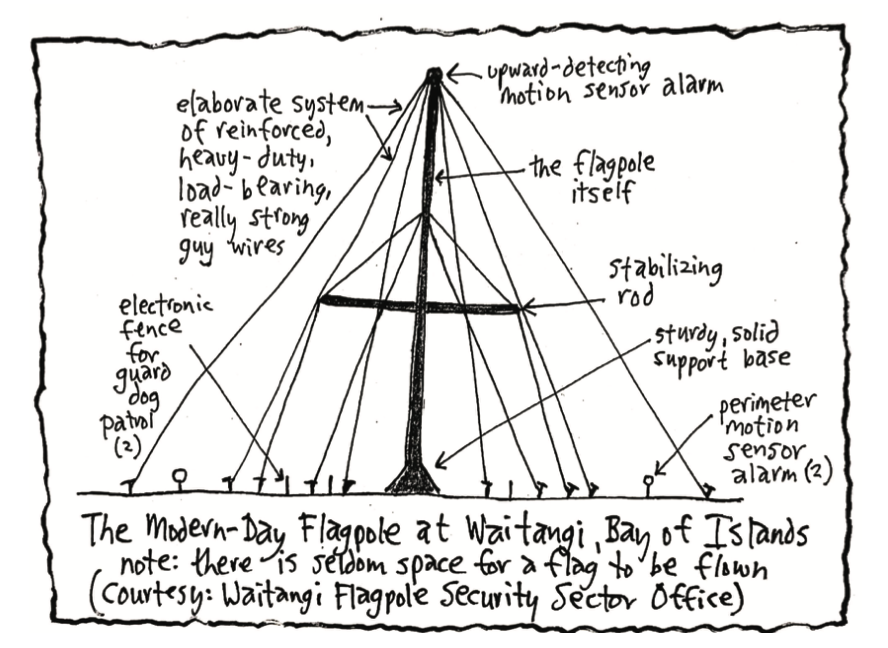 upward-detecting
motion sensor alarm
elaborate system
of reinforced,
heavy-duty,
load-bearing,
really strong
guy wires
the flagpole
itself
stabilizing
rod
electronic
fence
for
guard
dog
patrol
(2)
sturdy, solid
support base
perimeter
motion
sensor
alarm (2)
The Modern-Day Flagpole at Waitangi, Bay of Islands
note: there is seldom space for a flag to be flown
(Courtesy: Waitangi Flagpole Security Sector Office)